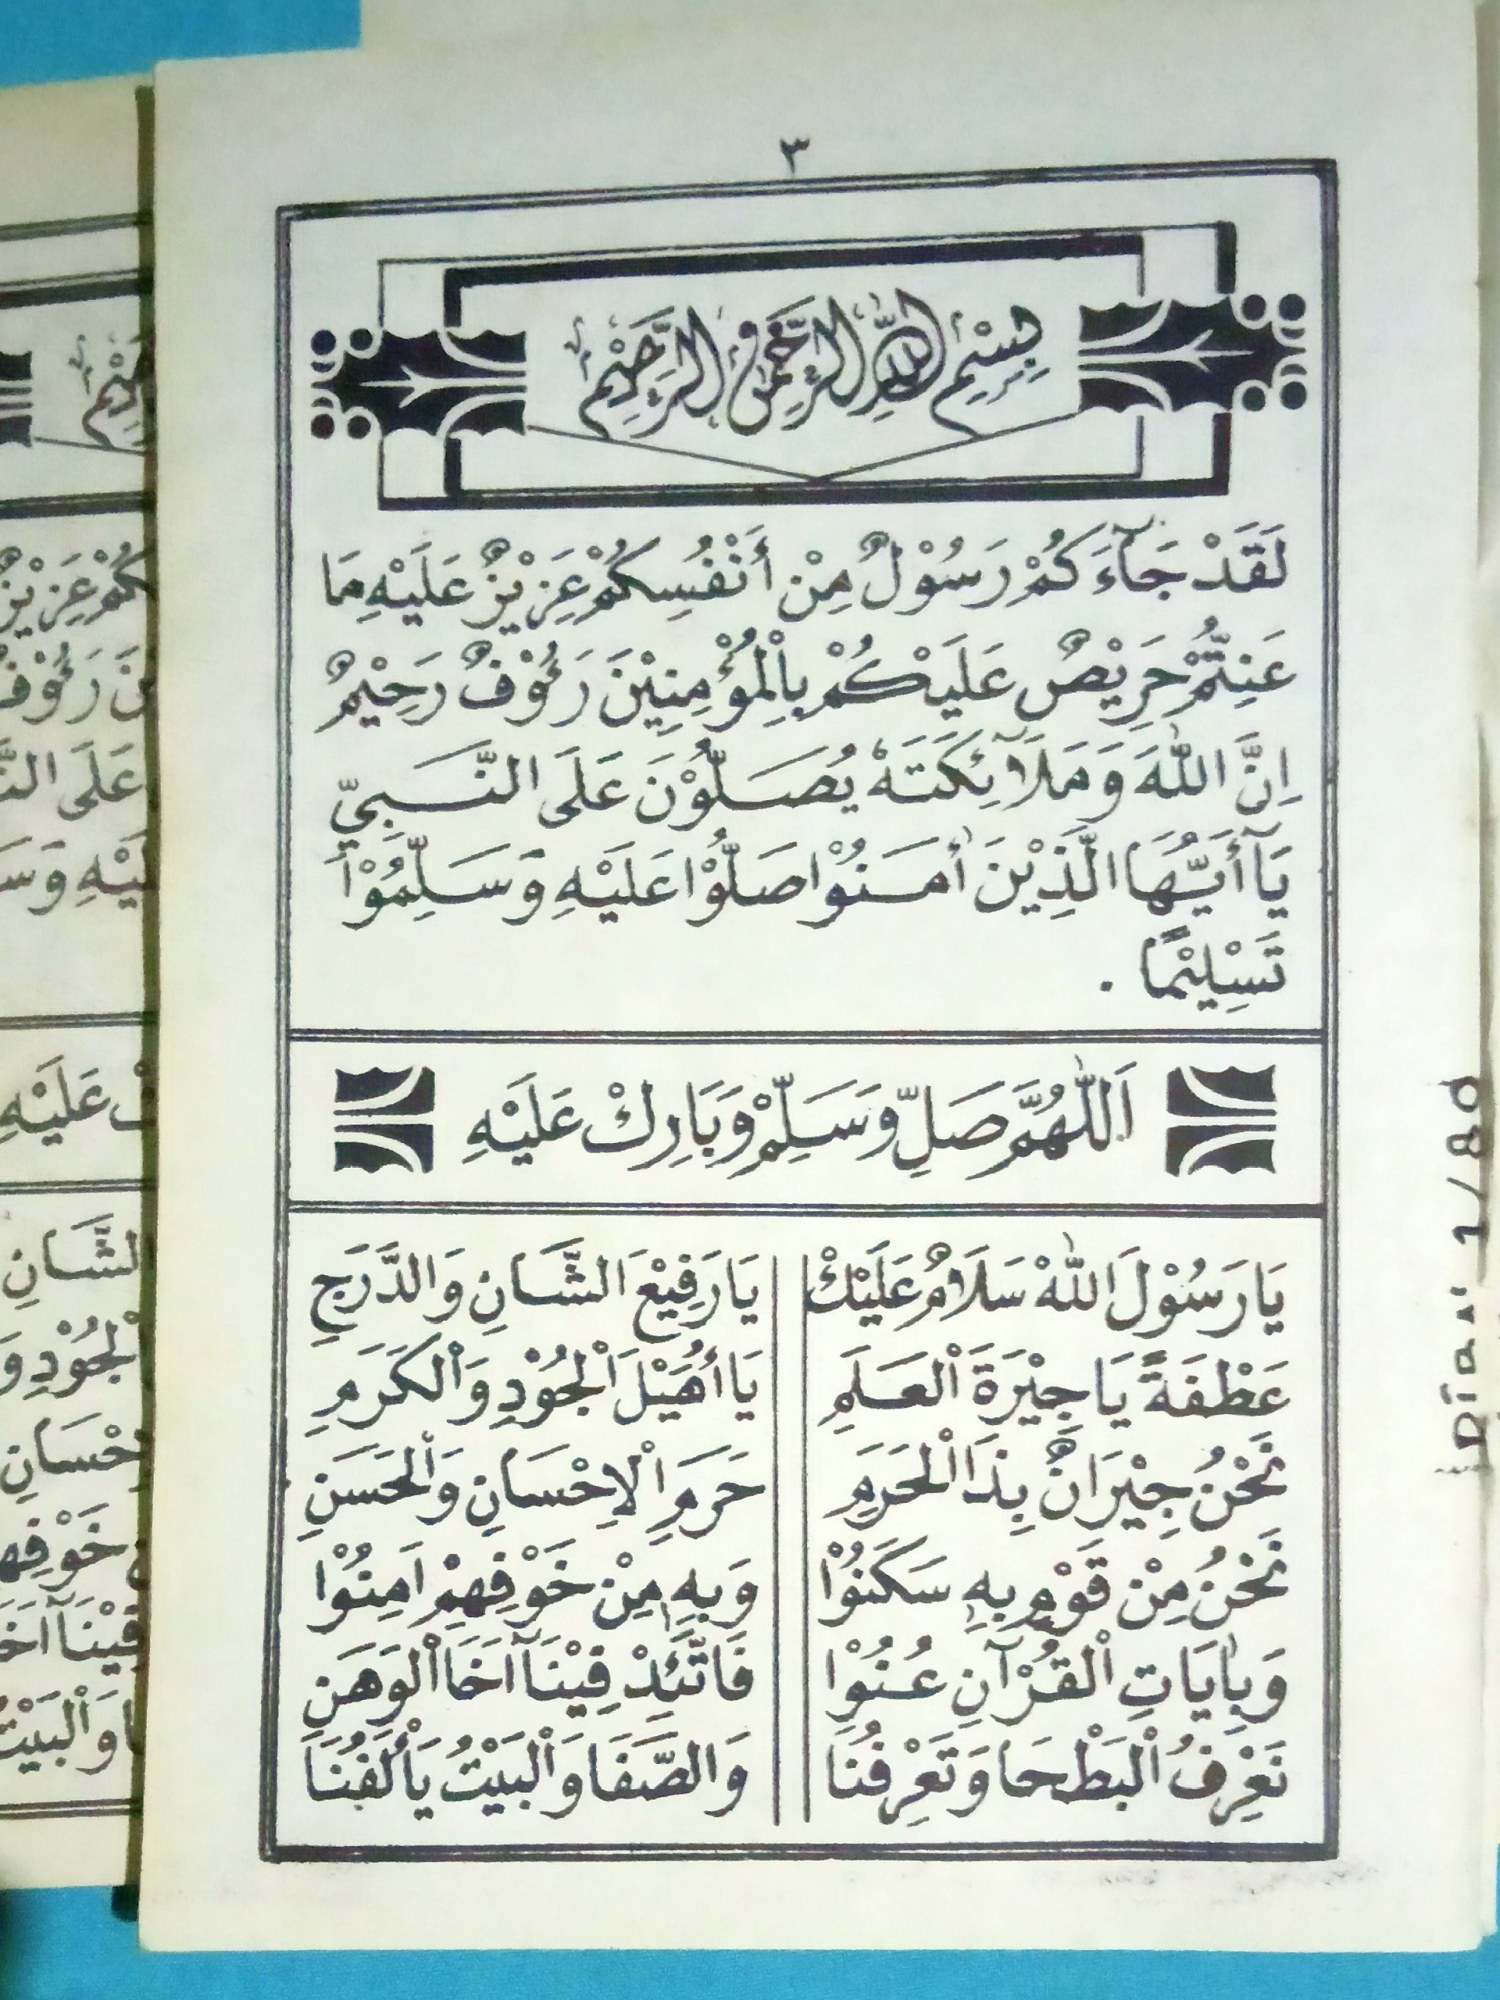 ٣
بِسْمِ اللهِ الرَّحْمٰنِ الرَّحِيْمِ
لَقَدْ جَآءَكُمْ رَسُوْلٌ مِنْ أَنْفُسِكُمْ عَزِيْزٌ عَلَيْهِ مَا
عَنِتُّمْ حَرِيْصٌ عَلَيْكُمْ بِالْمُؤْمِنِيْنَ رَءُوْفٌ رَحِيْمٌ
اِنَّ اللهَ وَمَلَآئِكَتَهُ يُصَلُّوْنَ عَلَى النَّبِيِّ
يَآأَيُّهَا الَّذِيْنَ أٰمَنُوْا صَلُّوْا عَلَيْهِ وَسَلِّمُوْا
تَسْلِيْمًا .
اَللّٰهُمَّ صَلِّ وَسَلِّمْ وَبَارِكْ عَلَيْهِ
يَا رَسُوْلَ اللهْ سَلَامٌ عَلَيْكْ يَا رَفِيْعَ الشَّانِ وَالدَّرَجِ
عَطْفَةً يَا جِيْرَةَ الْعَلَمِ يَا أُهَيْلَ الْجُوْدِ وَالْكَرَمِ
نَحْنُ جِيْرَانٌ بِذَا الْحَرَمِ حَرَمِ الْإِحْسَانِ وَالْحَسَنِ
نَحْنُ مِنْ قَوْمٍ بِهِ سَكَنُوْا وَبِهِ مِنْ خَوْفِهِمْ اَمِنُوْا
وَبِاٰيَاتِ الْقُرْآنِ عُنُوْا فَاتَّئِدْ فِيْنَآ اَخَا الْوَهَنِ
نَعْرِفُ الْبَطْحَا وَتَعْرِفُنَا وَالصَّفَا وَالْبَيْتُ يَأْلَفُنَا